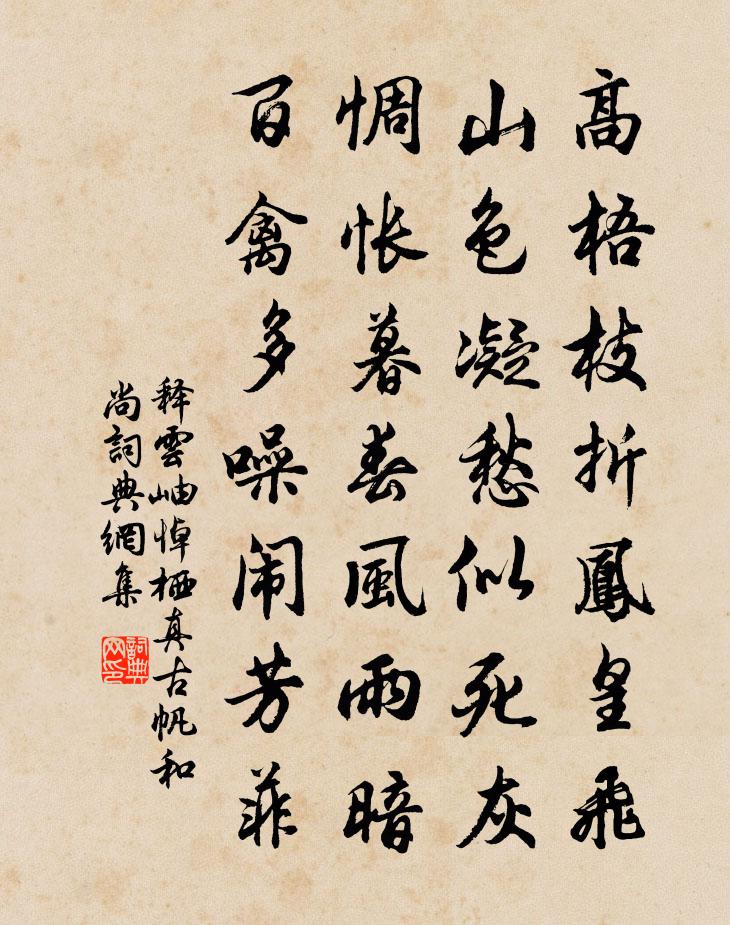 高梧枝折鳳皇飛
山色凝愁似死灰
惆怅暮春風雨暗
百禽多噪闹芳菲
释雲岫悼栖真古帆和
尚詞典網集
詞典网印